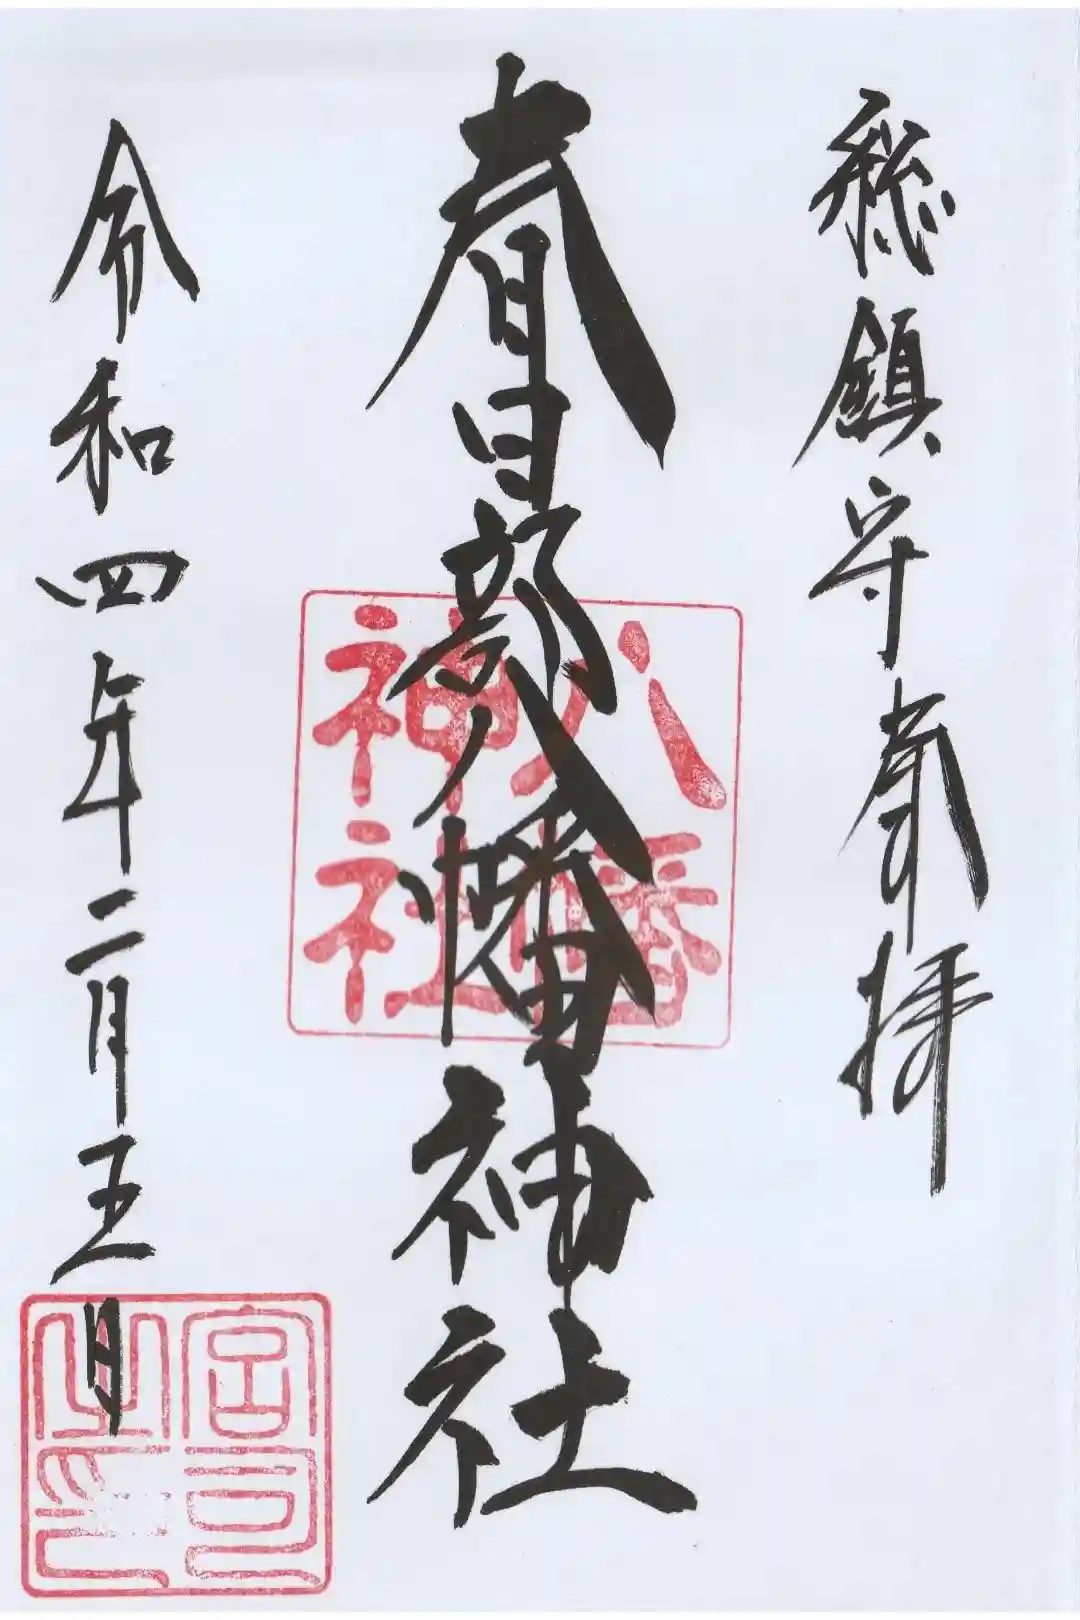 総鎮守奉拝
春日部八幡神社
八幡
神社
令和四年二月五日
宮司
之印